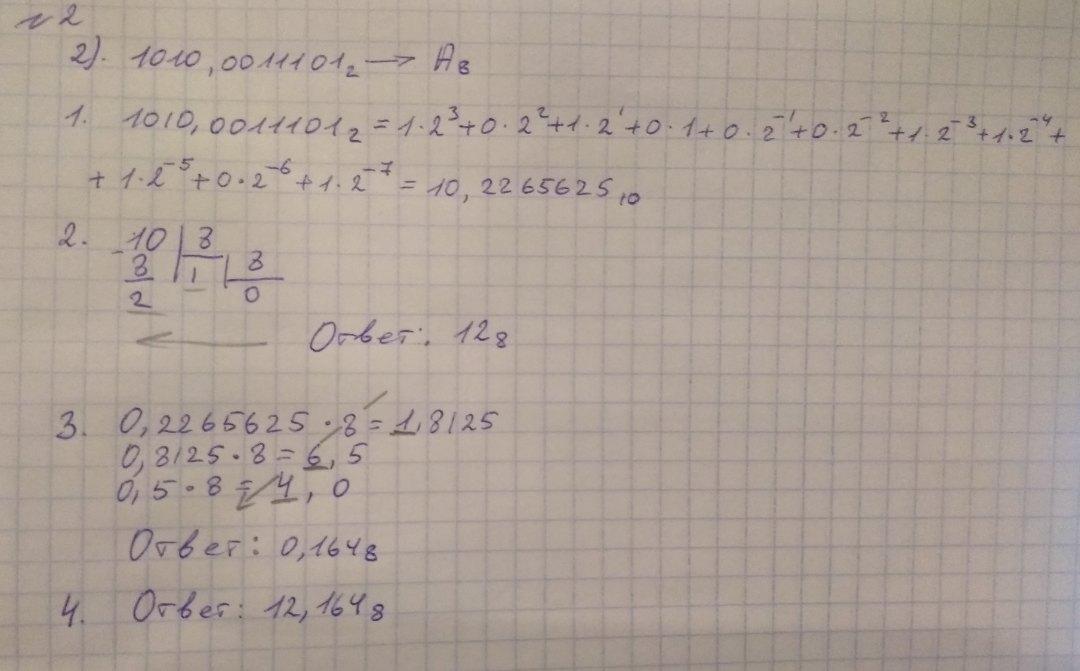 №2
2). 1010,0011101₂ → A₈
1. 1010,0011101₂ = 1·2³+0·2²+1·2¹+0·1+0·2⁻¹+0·2⁻²+1·2⁻³+1·2⁻⁴+
+ 1·2⁻⁵+0·2⁻⁶+1·2⁻⁷ = 10,2265625₁₀
2. 10 | 8
- 8 | 1 | 8
2 0
Ответ: 12₈
3. 0,2265625 · 8 = 1,8125
0,8125 · 8 = 6,5
0,5 · 8 = 4,0
Ответ: 0,164₈
4. Ответ: 12,164₈